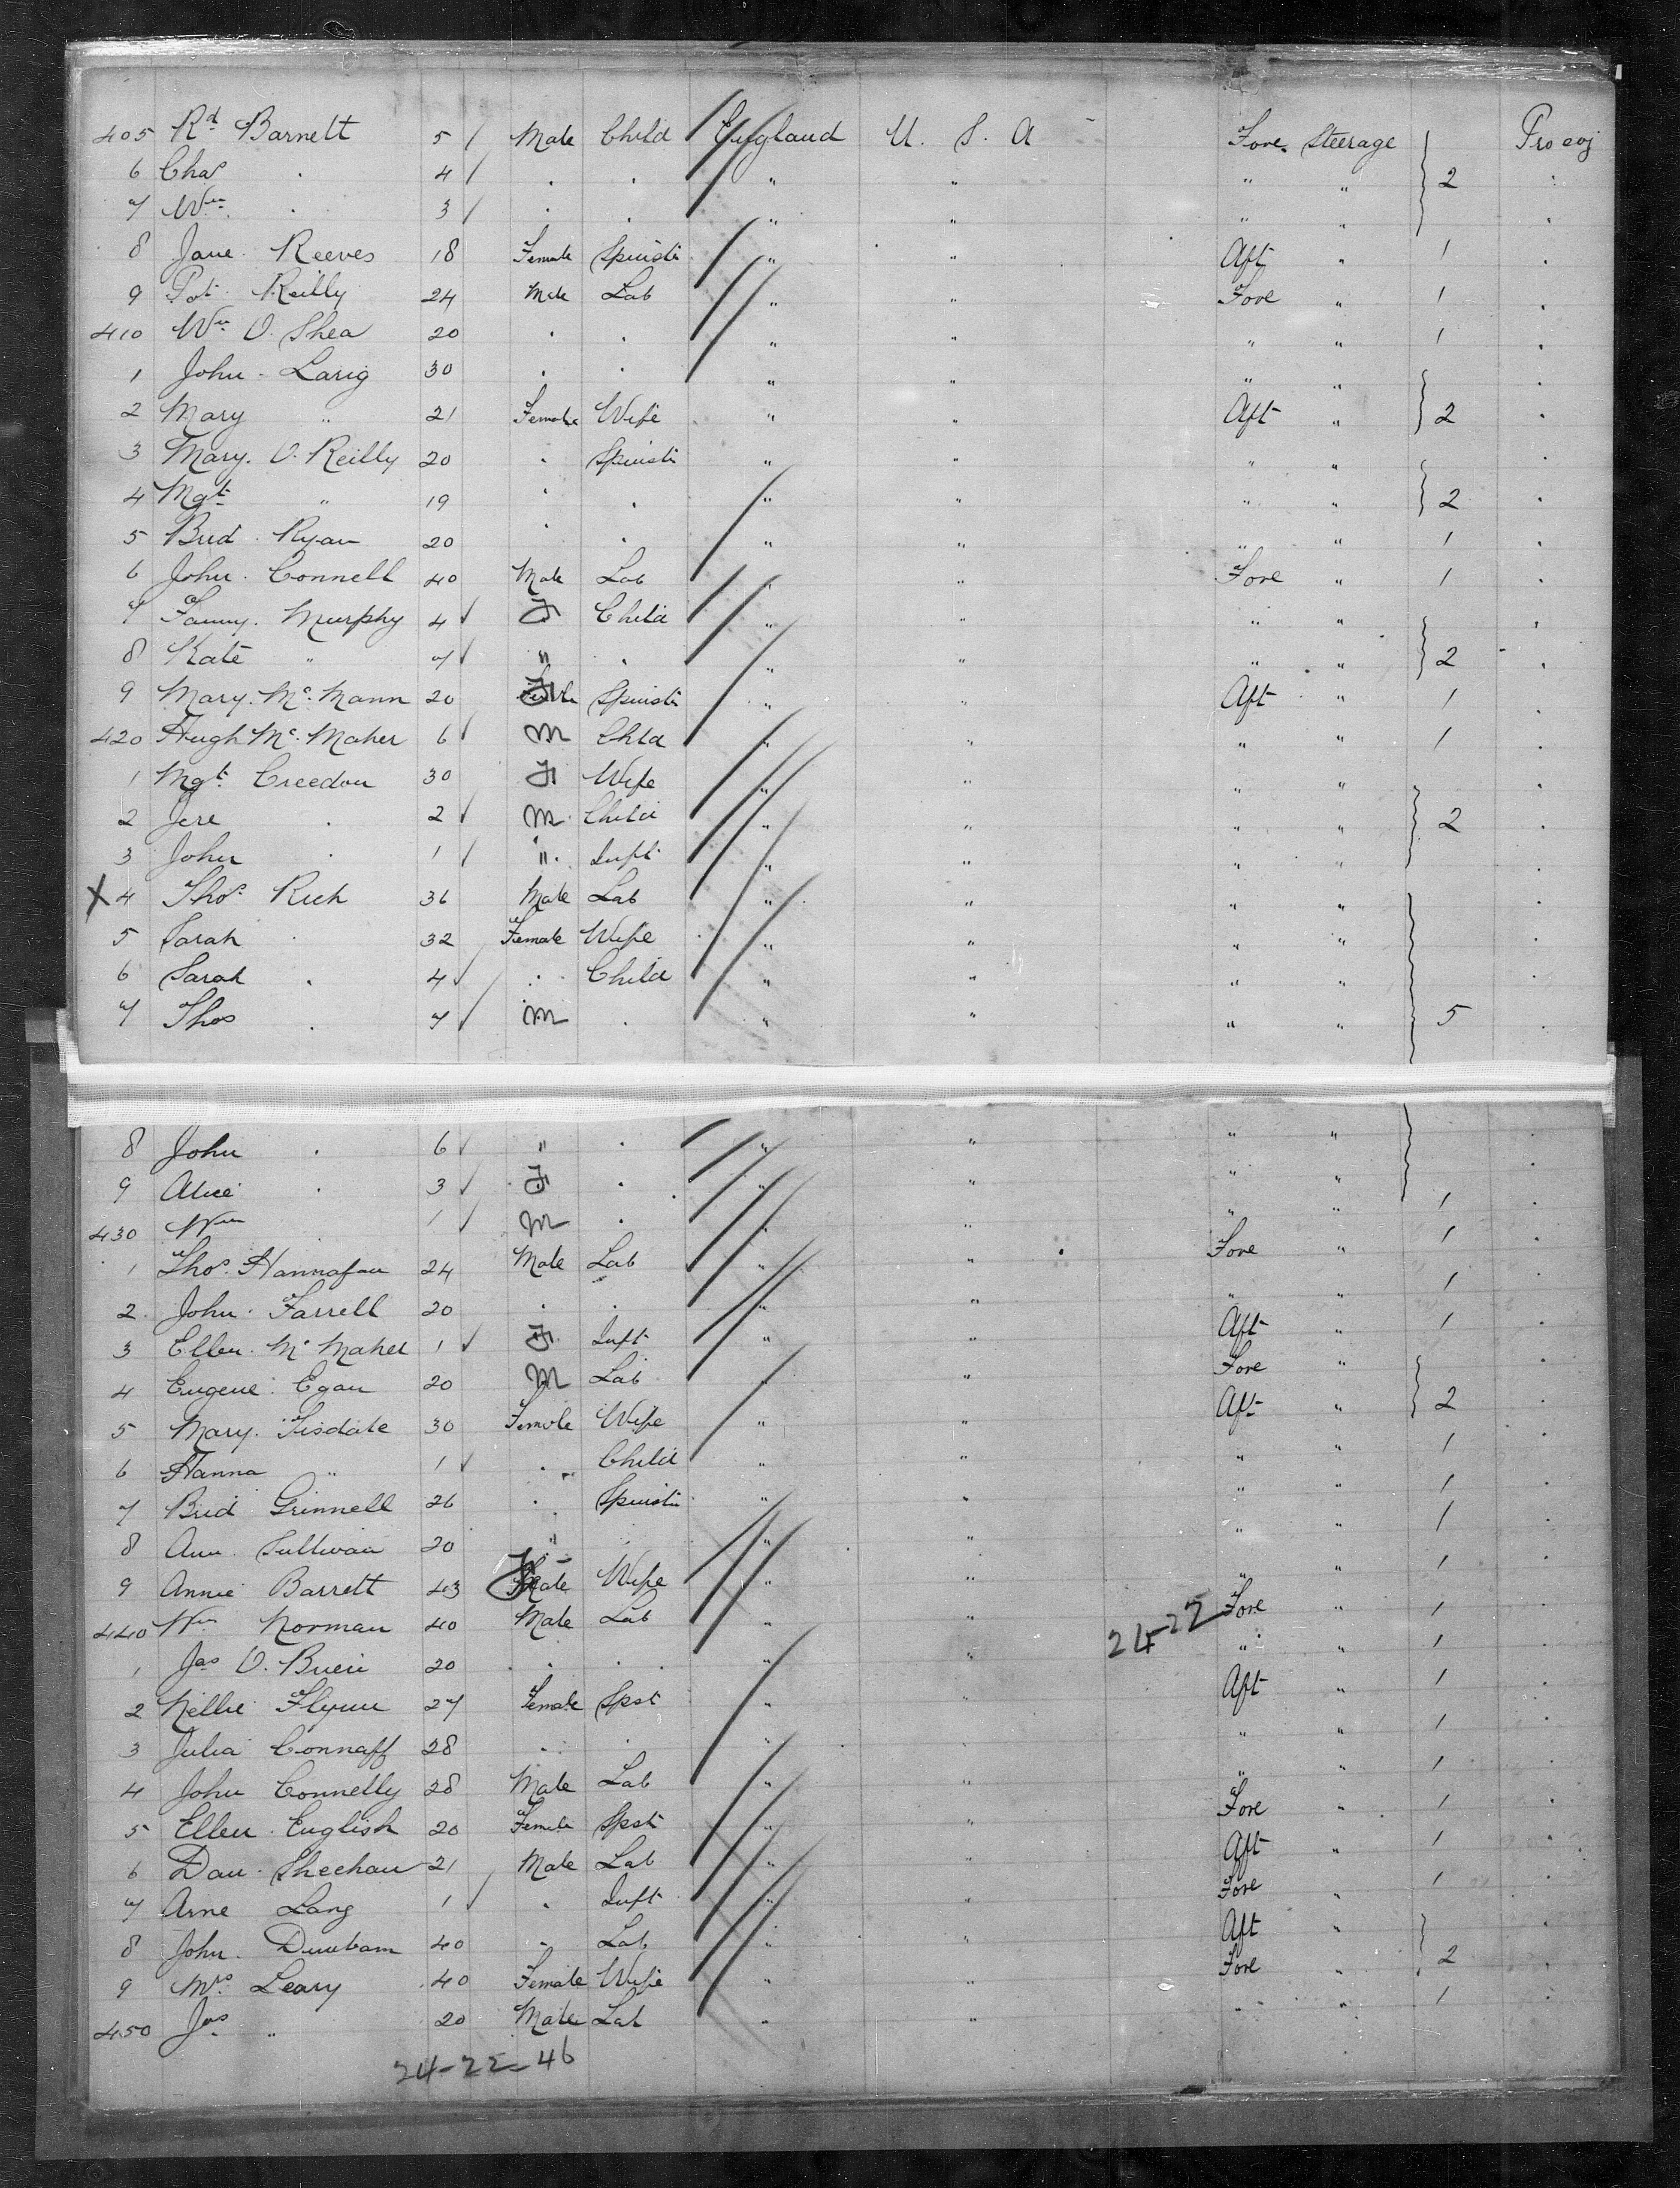 405 Rd Barnett 5 / Male Child England U. S. A Fore Steerage Pro coj
6 Chas . 4 / . . " " " " 2 .
7 Wm . 3 / . . " " " " .
8 Jane Reeves 18 Female Spinstr " " Aft " 1 .
9 Pat Reilly 24 Male Lab " " Fore " 1 .
410 Wm O. Shea 20 . . " " " " 1 .
1 John Larig 30 . . " " " " .
2 Mary " 21 Female Wife " " Aft " 2 .
3 Mary. O. Reilly 20 . Spinstr " " " " .
4 Mgt " 19 . . " " " " 2 .
5 Brid. Ryan 20 . . " " " " 1 .
6 John. Connell 40 Male Lab " " Fore " 1 .
7 Fanny. Murphy 4 ✓ F Child " " " " .
8 Kate " 7 ✓ " . " " " " 2 .
9 Mary. Mc. Mann 20 F Spinstr " " Aft " 1 .
420 Hugh Mc. Maher 6 ✓ M Child " " " " 1 .
1 Mgt. Creedon 30 F Wife " " " " .
2 Jere . 2 ✓ M Child " " " " 2 .
3 John . 1 ✓ " Inft " " " " .
X 4 Thos. Rich 36 Male Lab " " " " .
5 Sarah . 32 Female Wife " " " " .
6 Sarah . 4 ✓ . Child " " " " .
7 Thos . 7 ✓ M . " " " " 5 .
8 John . 6 ✓ " . " " " " .
9 Alice . 3 ✓ F . " " " " .
430 Wm 1 ✓ M . " " " " 1 .
1 Thos. Hannafan 24 Male Lab " " Fore " 1 .
2 John. Farrell 20 . . " " " " 1 .
3 Ellen. Mc Maher 1 ✓ F Inft " " Aft " 1 .
4 Eugene. Egan 20 M Lab " " Fore " .
5 Mary. Tisdale 30 Female Wife " " Aft " 2 .
6 Hanna " 1 ✓ . Child " " " " 1 .
7 Brid Grinnell 26 . Spinstr " " " " 1 .
8 Ann. Sullivan 20 " . " " " " 1 .
9 Annie Barrett 43 F Wife " " " " 1 .
440 Wm Norman 40 Male Lab " " 24-22 Fore " 1 .
1 Jas O. Brien 20 . . " " " " 1 .
2 Nellie Flynn 27 Female Spst " " Aft " 1 .
3 Julia Connaff 28 . . " " " " 1 .
4 John Connelly 28 Male Lab " " " 1 .
5 Ellen. English 20 Female Spst " " Fore " 1 .
6 Dan. Sheehan 21 Male Lab " " Aft " 1 .
7 Arne Lang 1 ✓ . Inft " " Fore " 1 .
8 John. Dunbam 40 . Lab " " Aft " .
9 Mrs. Leary 40 Female Wife " " Fore " 2 .
450 Jas " 20 Male Lab " " " " 1 .
24-22-46